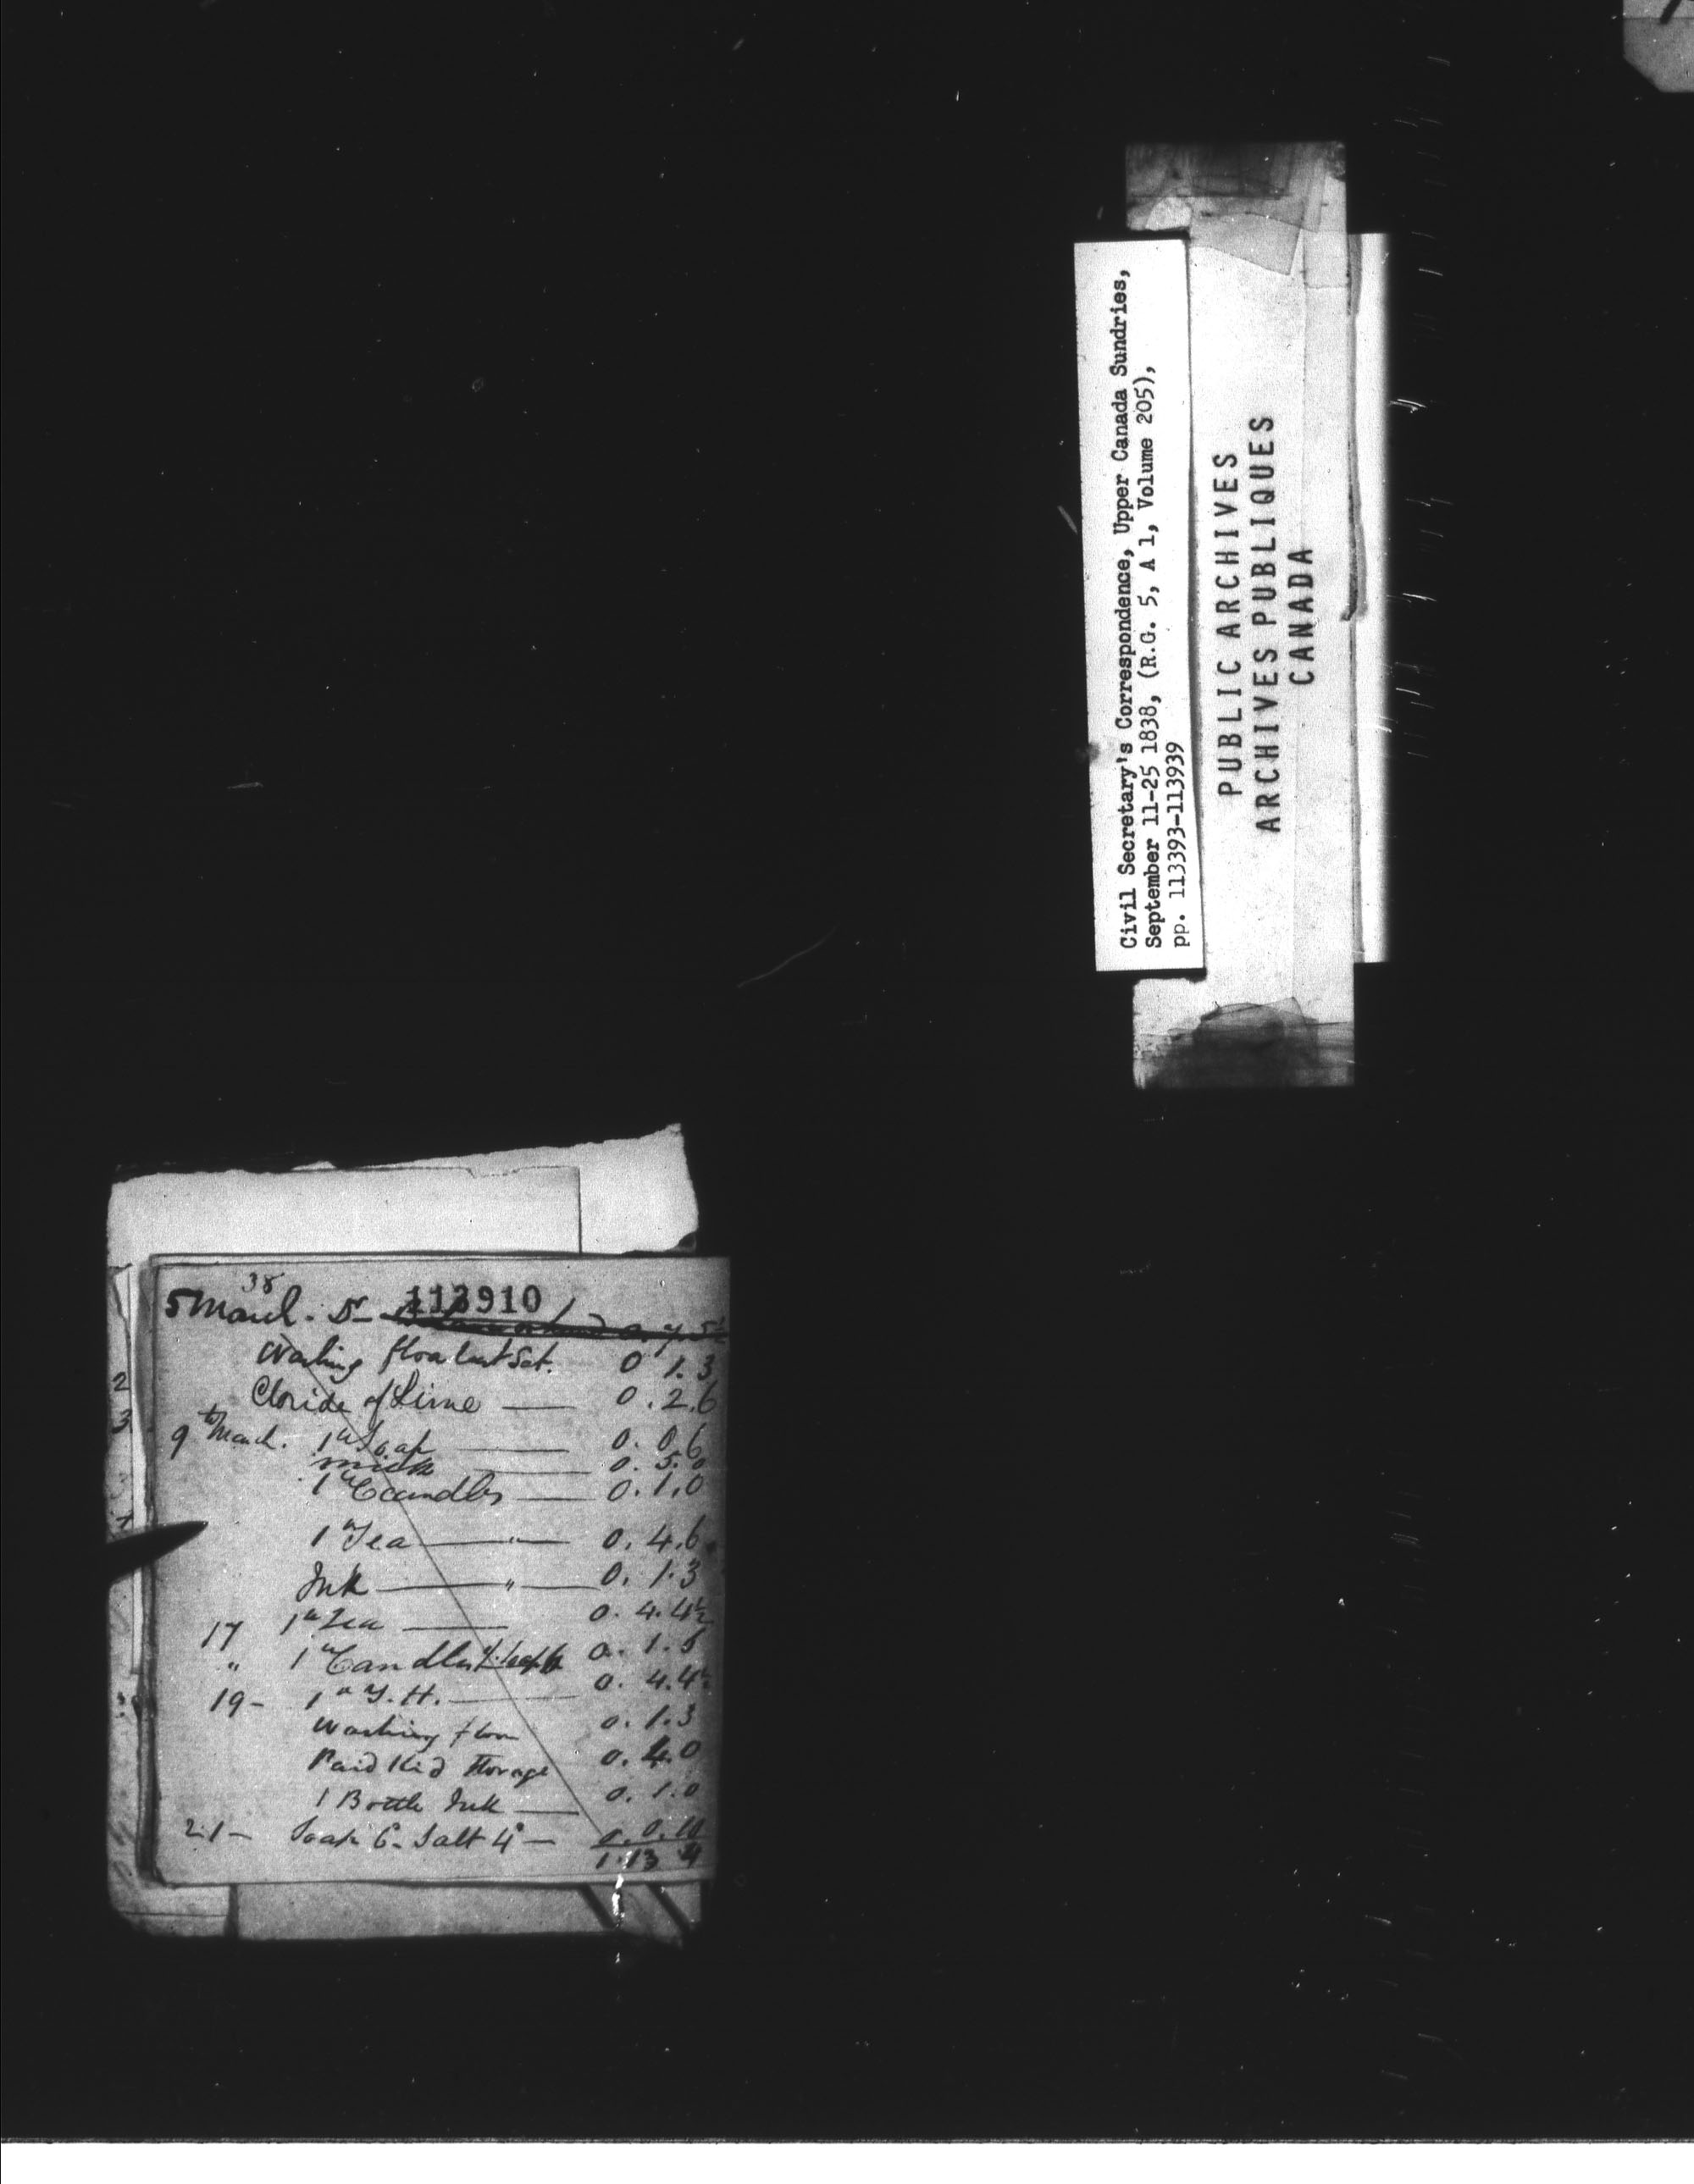 Civil Secretary's Correspondence, Upper Canada Sundries,
September 11-25 1838, (R.G. 5, A 1, Volume 205),
pp. 113393-113939
PUBLIC ARCHIVES
ARCHIVES PUBLIQUES
CANADA
113910
38
5 March. Dr
Washing floor last Sat. 0 1.3
Cloride of Lime — 0.2.6
9th March. 1 " Soap — 0. 0.6
milk — 0. 5.
1 " Candles — 0.1.0
1 " Tea — " — 0. 4.6
Ink — " — 0. 1.3
17 1 " Tea — 0. 4. 4½
" 1 " Candles 0. 1. 5
19 - 1 " Y. H. — 0. 4.4½
Washing floor 0. 1.3
Paid Kid Storage 0. 4.0
1 Bottle Ink — 0. 1.0
21 - Soap 6. Salt 4 — 0. 0. 10
1.13 4
2
3